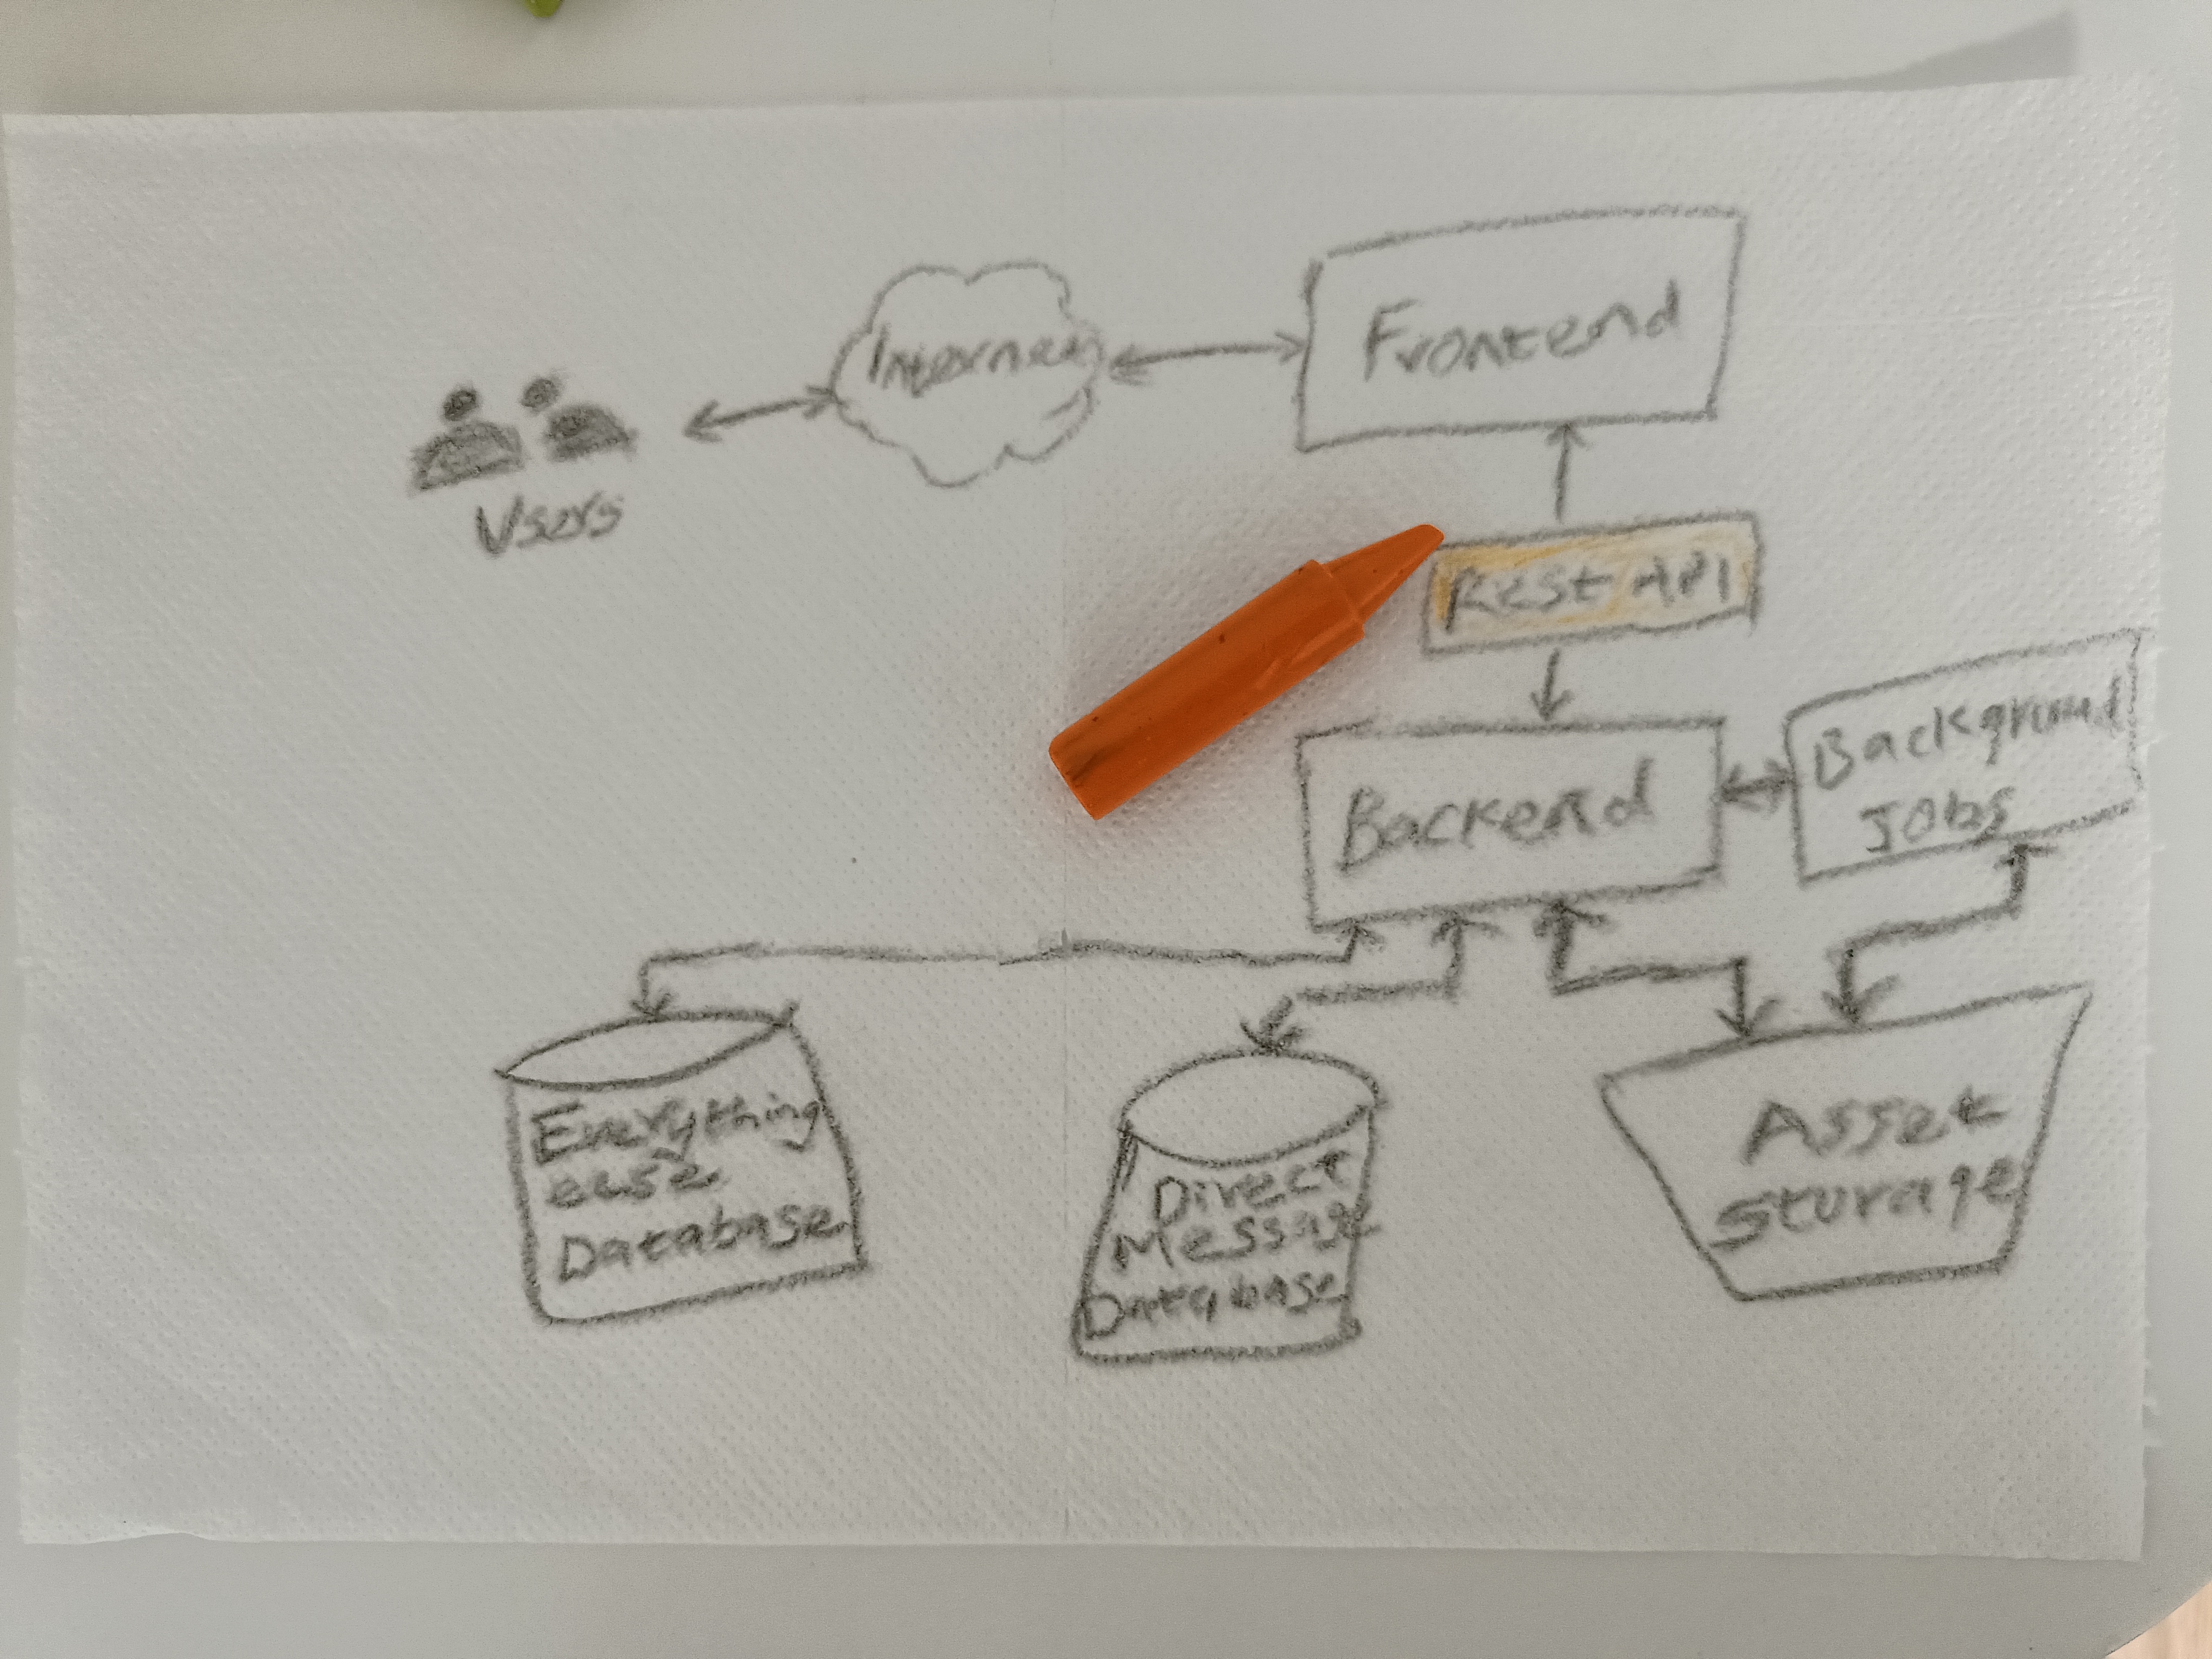 Internet
Frontend
Users
Rest API
Background
Jobs
Backend
Everything
else
Database
Direct
Message
Database
Asset
Storage